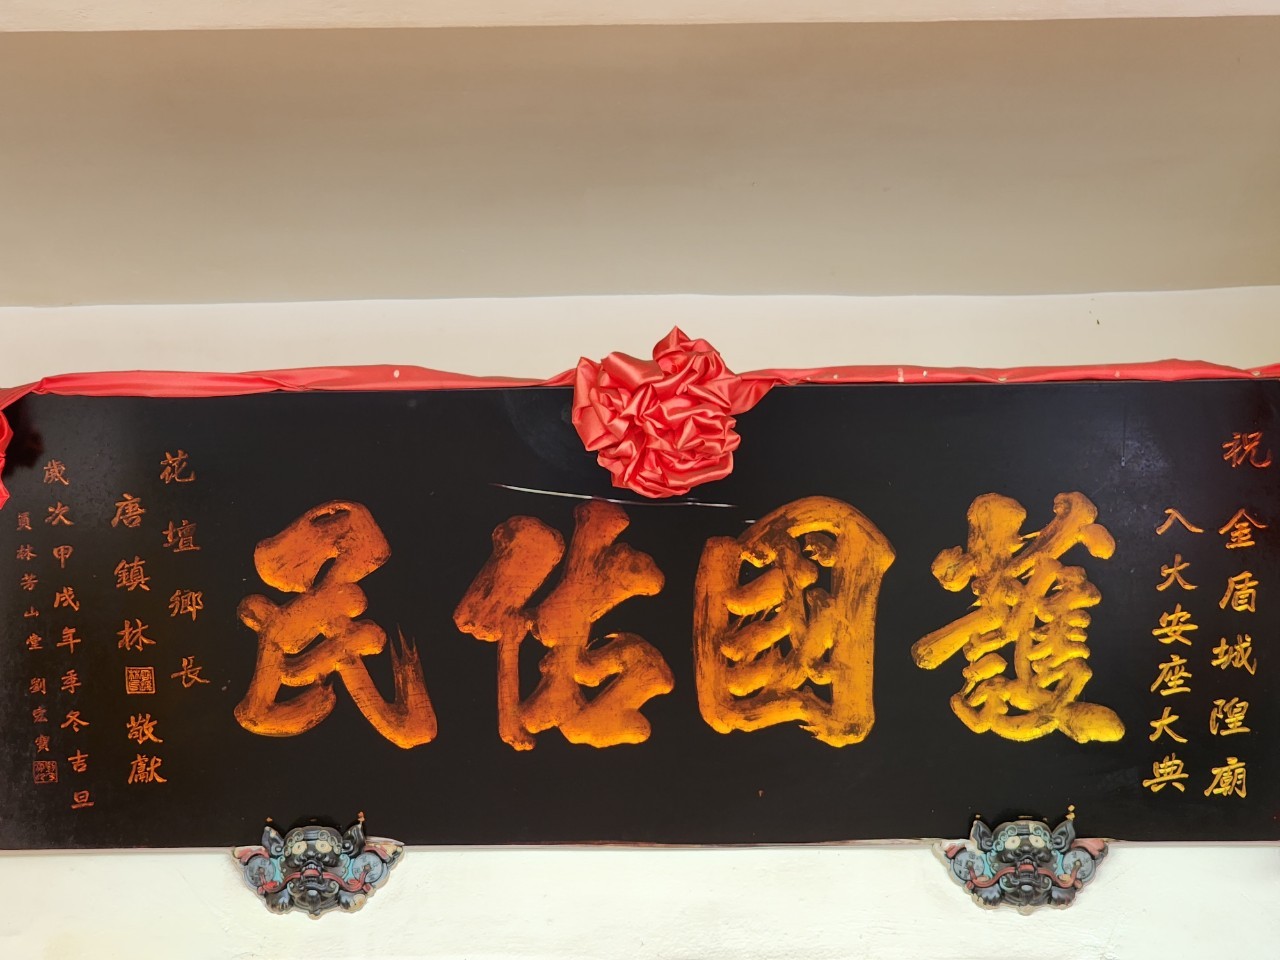 祝金盾城隍廟
入火安座大典
護國佑民
花壇鄉長
唐鎮林敬獻
歲次甲戌年季冬吉旦
員林芳山堂劉宏寶